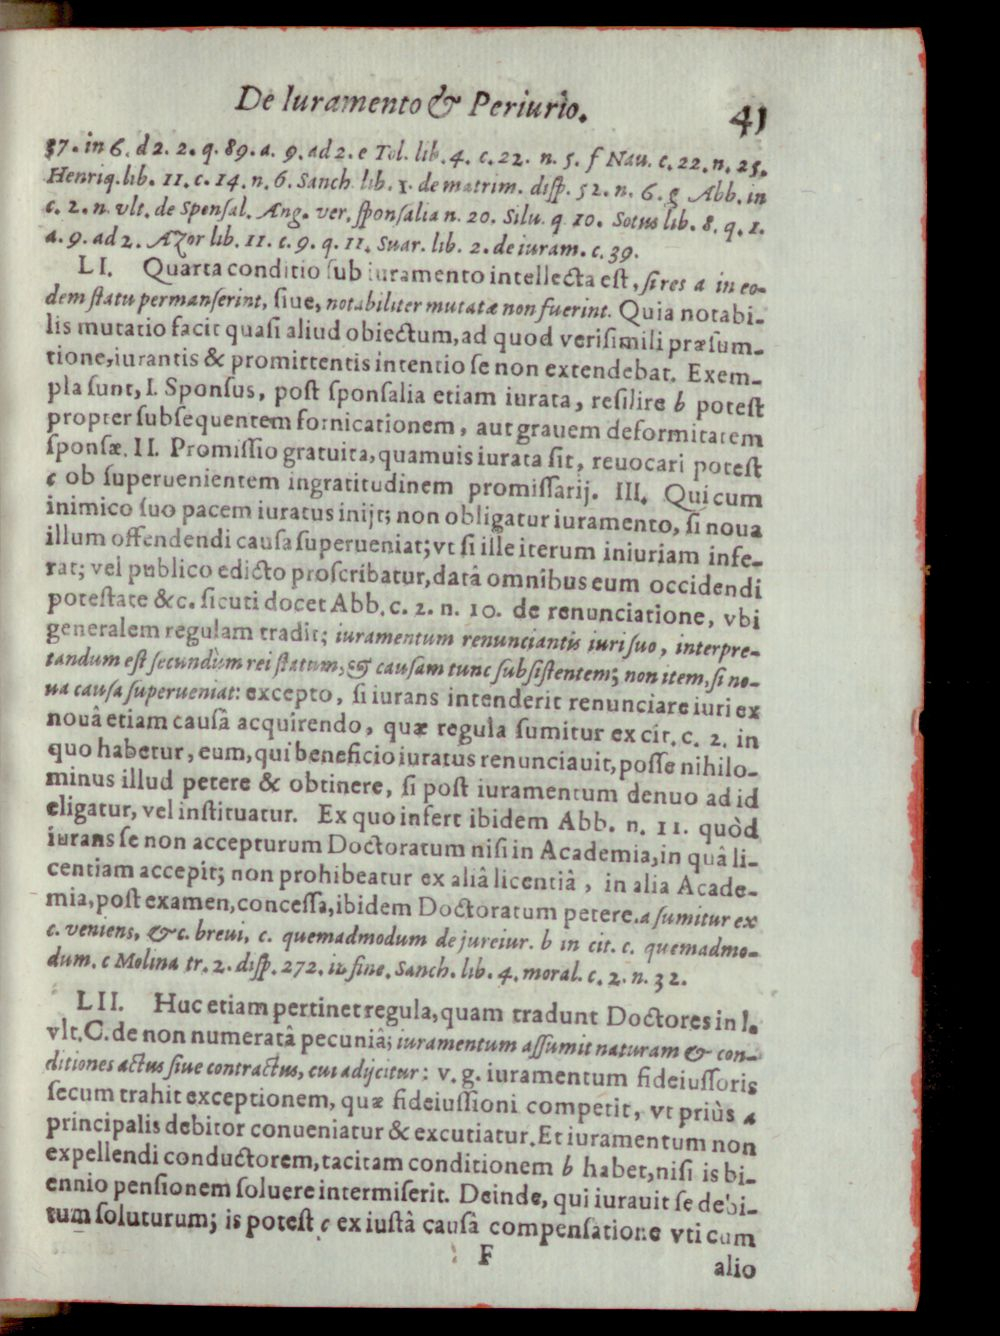 De Iuramento & Periurio. 41
37. in 6. d 2. 2. q. 89. a. 9. ad 2. e Tol. lib. 4. c. 22. n. 5. f Nau. c. 22. n. 25.
Henriq. lib. 11. c. 14. n. 6. Sanch. lib. 1. de matrim. disp. 52. n. 6. g Abb. in
c. 2. n. vlt. de Sponsal. Æng. ver. sponsalia n. 20. Silu. q 10. Sotus lib. 8. q. 1.
a. 9. ad 2. Azor lib. 11. c. 9. q. 11. Suar. lib. 2. de iuram. c. 39.
LI. Quarta conditio sub iuramento intellecta est, si res a in eo-
dem statu permanserint, siue, notabiliter mutatæ non fuerint. Quia notabi-
lis mutatio facit quasi aliud obiectum, ad quod verisimili præsum-
tione, iurantis & promittentis intentio se non extendebat. Exem-
pla sunt, I. Sponsus, post sponsalia etiam iurata, resilire b potest
propter subsequentem fornicationem, aut grauem deformitatem
sponsæ. II. Promissio gratuita, quamuis iurata sit, reuocari potest
c ob superuenientem ingratitudinem promissarij. III. Qui cum
inimico suo pacem iuratus inijt; non obligatur iuramento, si noua
illum offendendi causa superueniat; vt si ille iterum iniuriam infe-
rat; vel publico edicto proscribatur, datâ omnibus eum occidendi
potestate &c. sicuti docet Abb. c. 2. n. 10. de renunciatione, vbi
generalem regulam tradit; iuramentum renunciantis iuri suo, interpre-
tandum est secundùm rei statum, & causam tunc subsistentem; non item, si no-
ua causa superueniat: excepto, si iurans intenderit renunciare iuri ex
nouâ etiam causâ acquirendo, quæ regula sumitur ex cit. c. 2. in
quo habetur, eum, qui beneficio iuratus renunciauit, posse nihilo-
minus illud petere & obtinere, si post iuramentum denuo ad id
eligatur, vel instituatur. Ex quo infert ibidem Abb. n. 11. quòd
iurans se non accepturum Doctoratum nisi in Academia, in quâ li-
centiam accepit; non prohibeatur ex aliâ licentiâ, in alia Acade-
mia, post examen, concessa, ibidem Doctoratum petere. a sumitur ex
c. veniens, &c. breui, c. quemadmodum de jureiur. b in cit. c. quemadmo-
dum. c Molina tr. 2. disp. 272. in fine, Sanch. lib. 4. moral. c. 2. n. 32.
LII. Huc etiam pertinet regula, quam tradunt Doctores in l.
vlt. C. de non numeratâ pecuniâ; iuramentum assumit naturam & con-
ditiones actus siue contractus, cui adijcitur: v. g. iuramentum fideiussoris
secum trahit exceptionem, quæ fideiussioni competit, vt priùs a
principalis debitor conueniatur & excutiatur. Et iuramentum non
expellendi conductorem, tacitam conditionem b habet, nisi is bi-
ennio pensionem soluere intermiserit. Deinde, qui iurauit se debi-
tum soluturum; is potest c ex iustâ causâ compensatione vti cum
F
alio